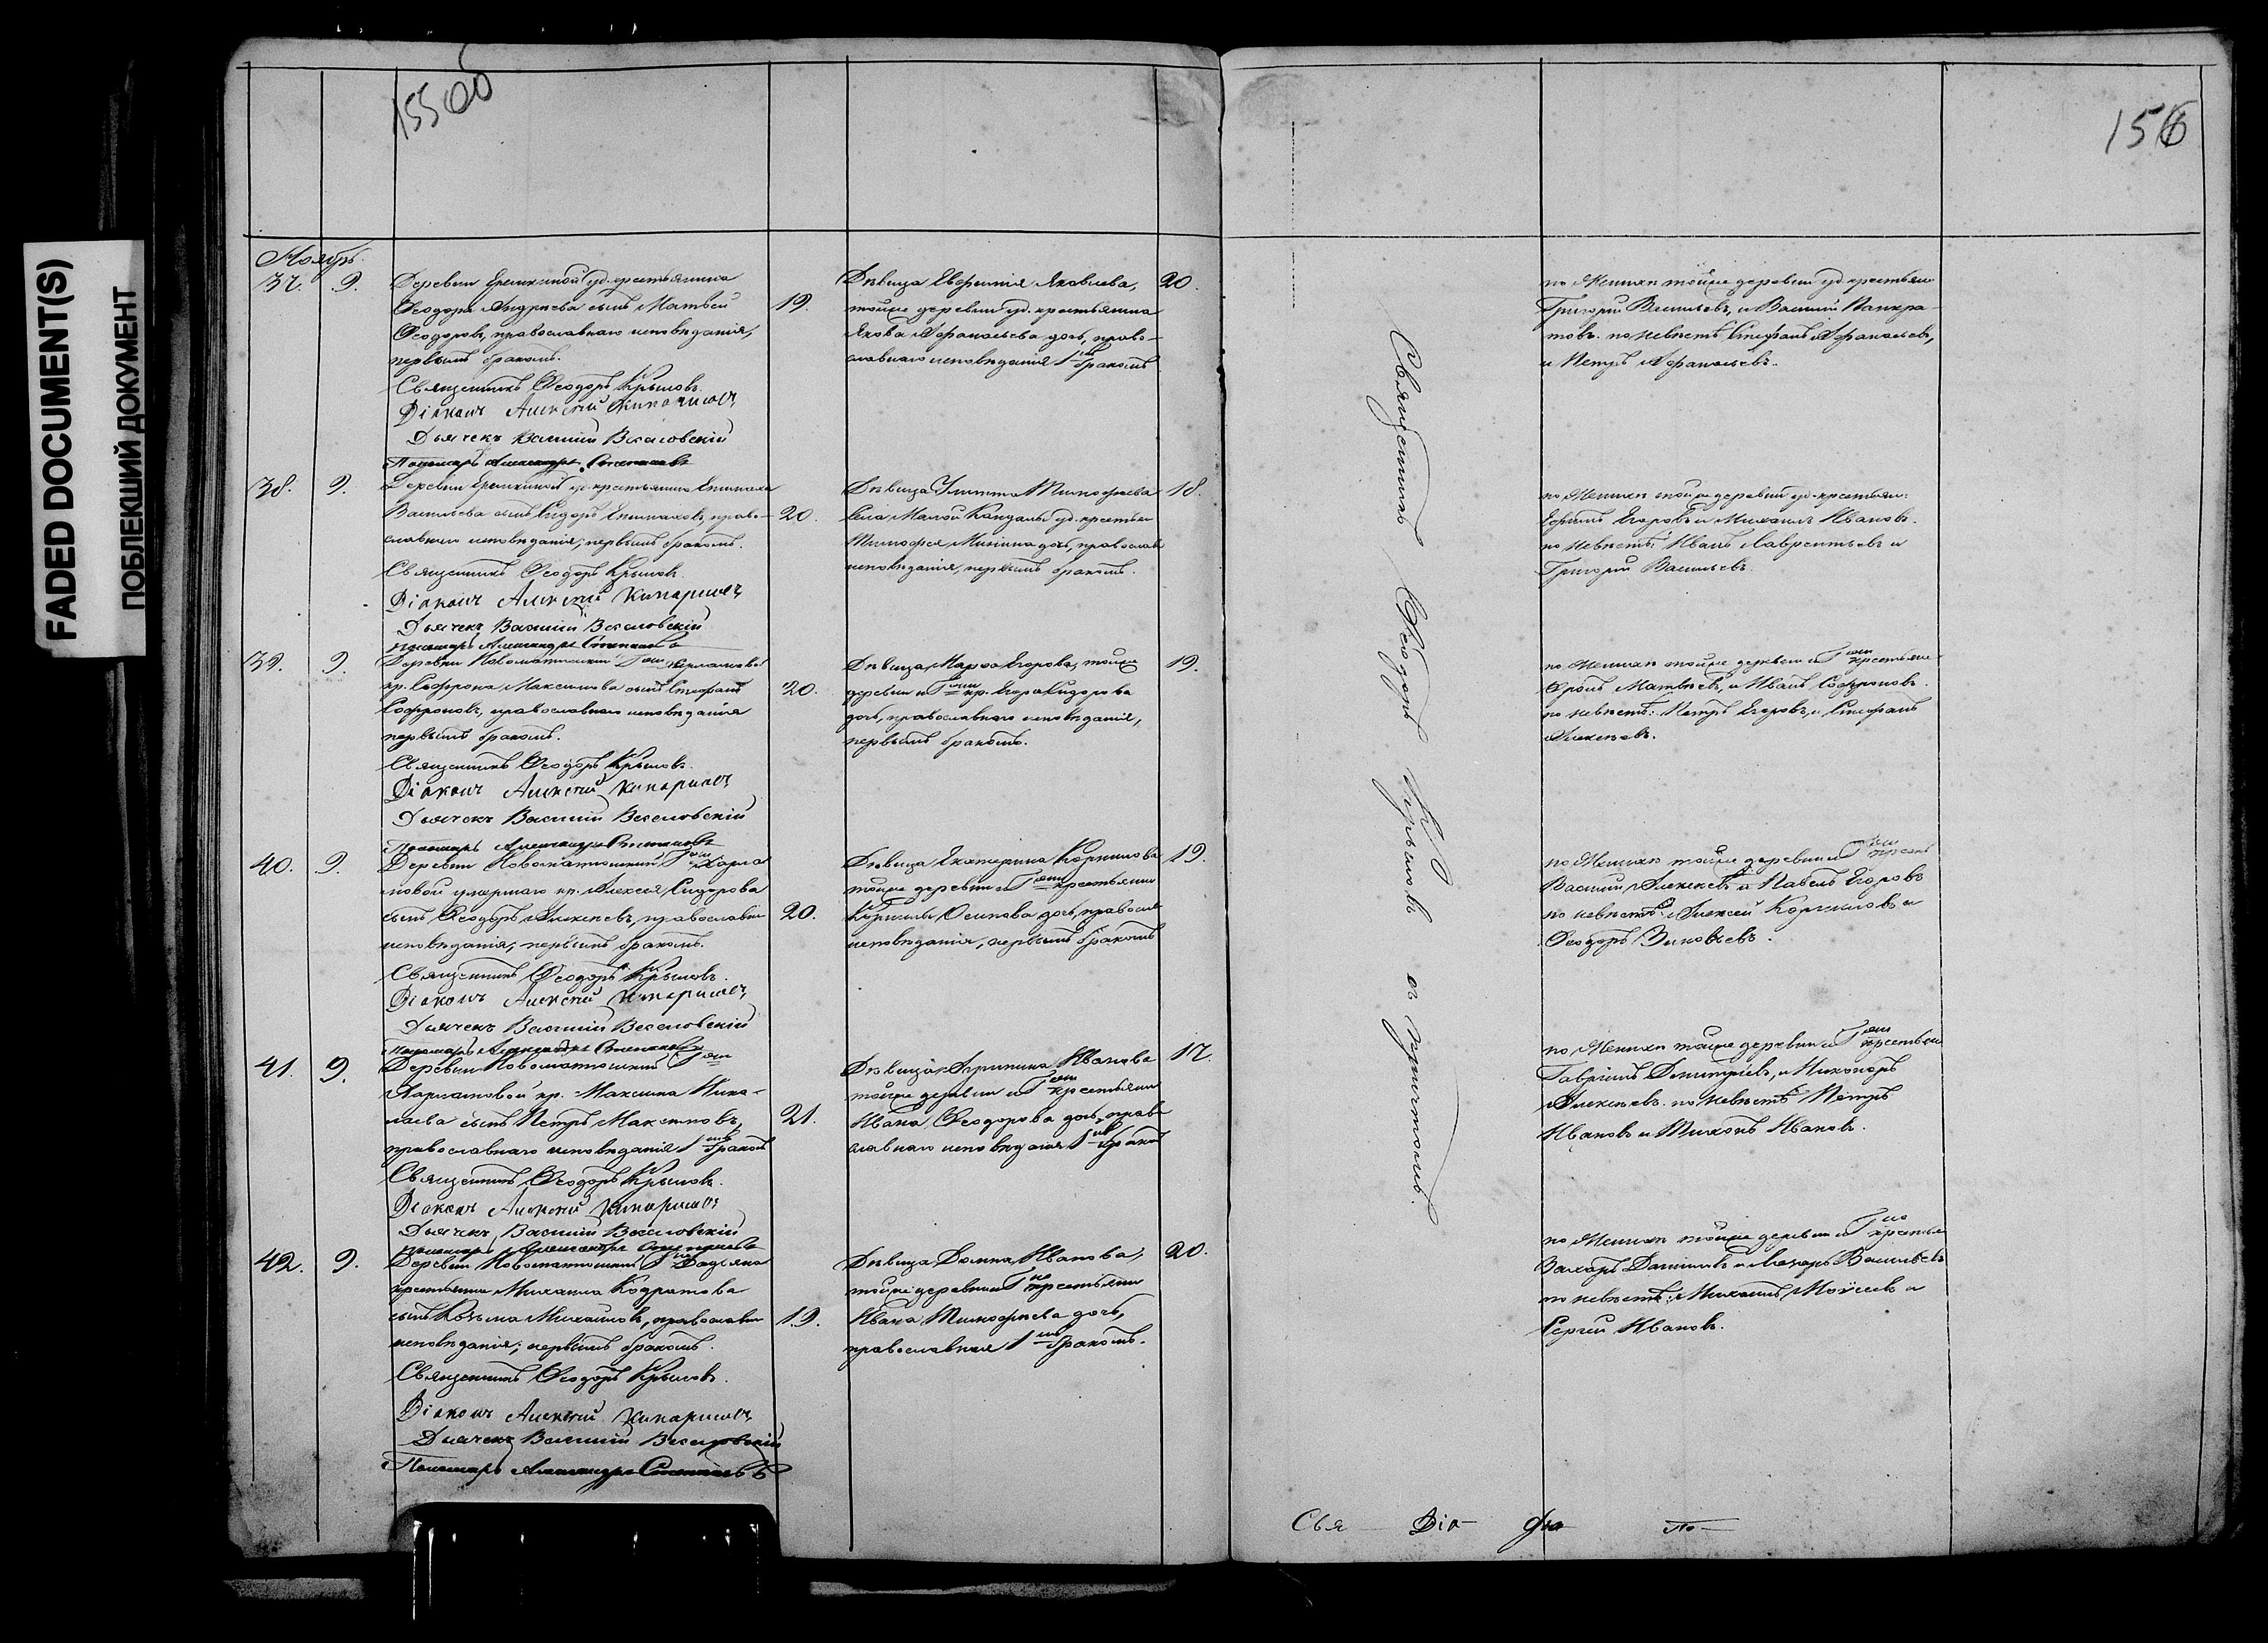 FADED DOCUMENT(S)
ПОБЛЕКШИЙ ДОКУМЕНТ
155 об
156
Ноябрь.
37. 9.
Деревни Еремкиной уд. крестьянина
Ѳеодора Андреева сынъ Матвей
Ѳеодоровъ, православнаго исповѣданія,
первымъ бракомъ.
19.
Священникъ Ѳеодоръ Крыловъ.
Діаконъ Алексей Кипарисовъ
Дьячекъ Василій Веселовскій
Пономарь Александръ Степановъ
Дѣвица Евфимія Яковлева,
тойже деревни уд. крестьянина
Якова Афанасьева дочь, право-
славнаго исповѣданія 1мъ бракомъ
20.
по Женихѣ тойже деревни уд. крестьяне
Григорій Васильевъ, и Василій Панкра-
товъ. по невѣстѣ Стефанъ Афанасьевъ,
и Петръ Афанасьевъ.
38. 9.
Деревни Еремкиной уд. крестьянина
Васильева сынъ Сидоръ право-
славнаго исповѣданія, первымъ бракомъ.
20.
Священникъ Ѳеодоръ Крыловъ.
Діаконъ Алексей Кипарисовъ
Дьячекъ Василій Веселовскій
Пономарь Александръ Степановъ
Дѣвица Улитта Тимофеева
села Малой Кандалы уд. крестьян
Тимофея дочь, православ
исповѣданія, первымъ бракомъ.
18.
по Женихѣ тойже деревни уд. крестьян:
Ефимъ Егоровъ и Михаилъ Ивановъ.
по невѣстѣ: Иванъ Лаврентьевъ и
Григорій Васильевъ.
39. 9.
Деревни Новоматюшкин Гжи
кр. Софрона Максимова сынъ Стефанъ
Софроновъ, православнаго исповѣданія
первымъ бракомъ.
20.
Священникъ Ѳеодоръ Крыловъ.
Діаконъ Алексей Кипарисовъ
Дьячекъ Василій Веселовскій
Пономарь Александръ Степановъ
Дѣвица Марѳа Егорова, тойже
деревни и Гжи кр. Егора Сидорова
дочь, православнаго исповѣданія,
первымъ бракомъ.
19.
по Женихѣ тойже деревни и Гжи крестьяне
Фролъ Матвѣевъ, и Иванъ Софроновъ.
по невѣстѣ: Петръ Егоровъ, и Стефанъ
Алексѣевъ.
40. 9.
Деревни Новоматюшкин Гжи Харла
мовой умершаго кр. Алексея Сидорова
сынъ Ѳеодоръ Алексѣевъ, православн
исповѣданія, первымъ бракомъ.
20.
Священникъ Ѳеодоръ Крыловъ.
Діаконъ Алексей Кипарисовъ
Дьячекъ Василій Веселовскій
Пономарь Александръ Степановъ
Дѣвица Екатерина Корнилова
тойже деревни и Гжи крестьянин
Корнилы Осипова дочь, правосла
исповѣданія, первымъ бракомъ
19.
по Женихѣ тойже деревни и Гжи крест
Василій Алексѣевъ и Павелъ Егоровъ
по невѣстѣ: Алексей Корниловъ и
Ѳеодоръ Зиновьевъ.
41. 9.
Деревни Новоматюшкин Гжи
Харламовой кр. Максима Нико-
лаева сынъ Петръ Максимовъ,
православнаго исповѣданія 1мъ бракомъ
21.
Священникъ Ѳеодоръ Крыловъ.
Діаконъ Алексей Кипарисовъ
Дьячекъ Василій Веселовскій
Пономарь Александръ Степановъ
Дѣвица Агрипина Иванова
тойже деревни и Гжи крестьянин
Ивана Ѳеодорова дочь, право
славнаго исповѣданія 1мъ бракомъ
17.
по Женихѣ тойже деревни и Гжи крестьян
Гавріилъ Дмитріевъ, и Никаноръ
Алексѣевъ. по невѣстѣ Петръ
Ивановъ и Тихонъ Ивановъ.
42. 9.
Деревни Новоматюшкин Гна
крестьянин Михаила Кодратова
сынъ Козьма Михайловъ, православн
исповѣданія, первымъ бракомъ.
19.
Священникъ Ѳеодоръ Крыловъ.
Діаконъ Алексей Кипарисовъ
Дьячекъ Василій Веселовскій
Пономарь Александръ Степановъ
Дѣвица Домна Иванова,
тойже деревни и Гна крестьянин
Ивана Тимофеева дочь,
православная 1мъ бракомъ.
20.
по Женихѣ тойже деревни и Гна крестьян
Захаръ Даниловъ и Лазарь Васильевъ
по невѣстѣ: Михаилъ Моисеевъ и
Сергей Ивановъ.
Священникъ Ѳеодоръ Крыловъ съ причтомъ.
Свя Діа- Дья По-